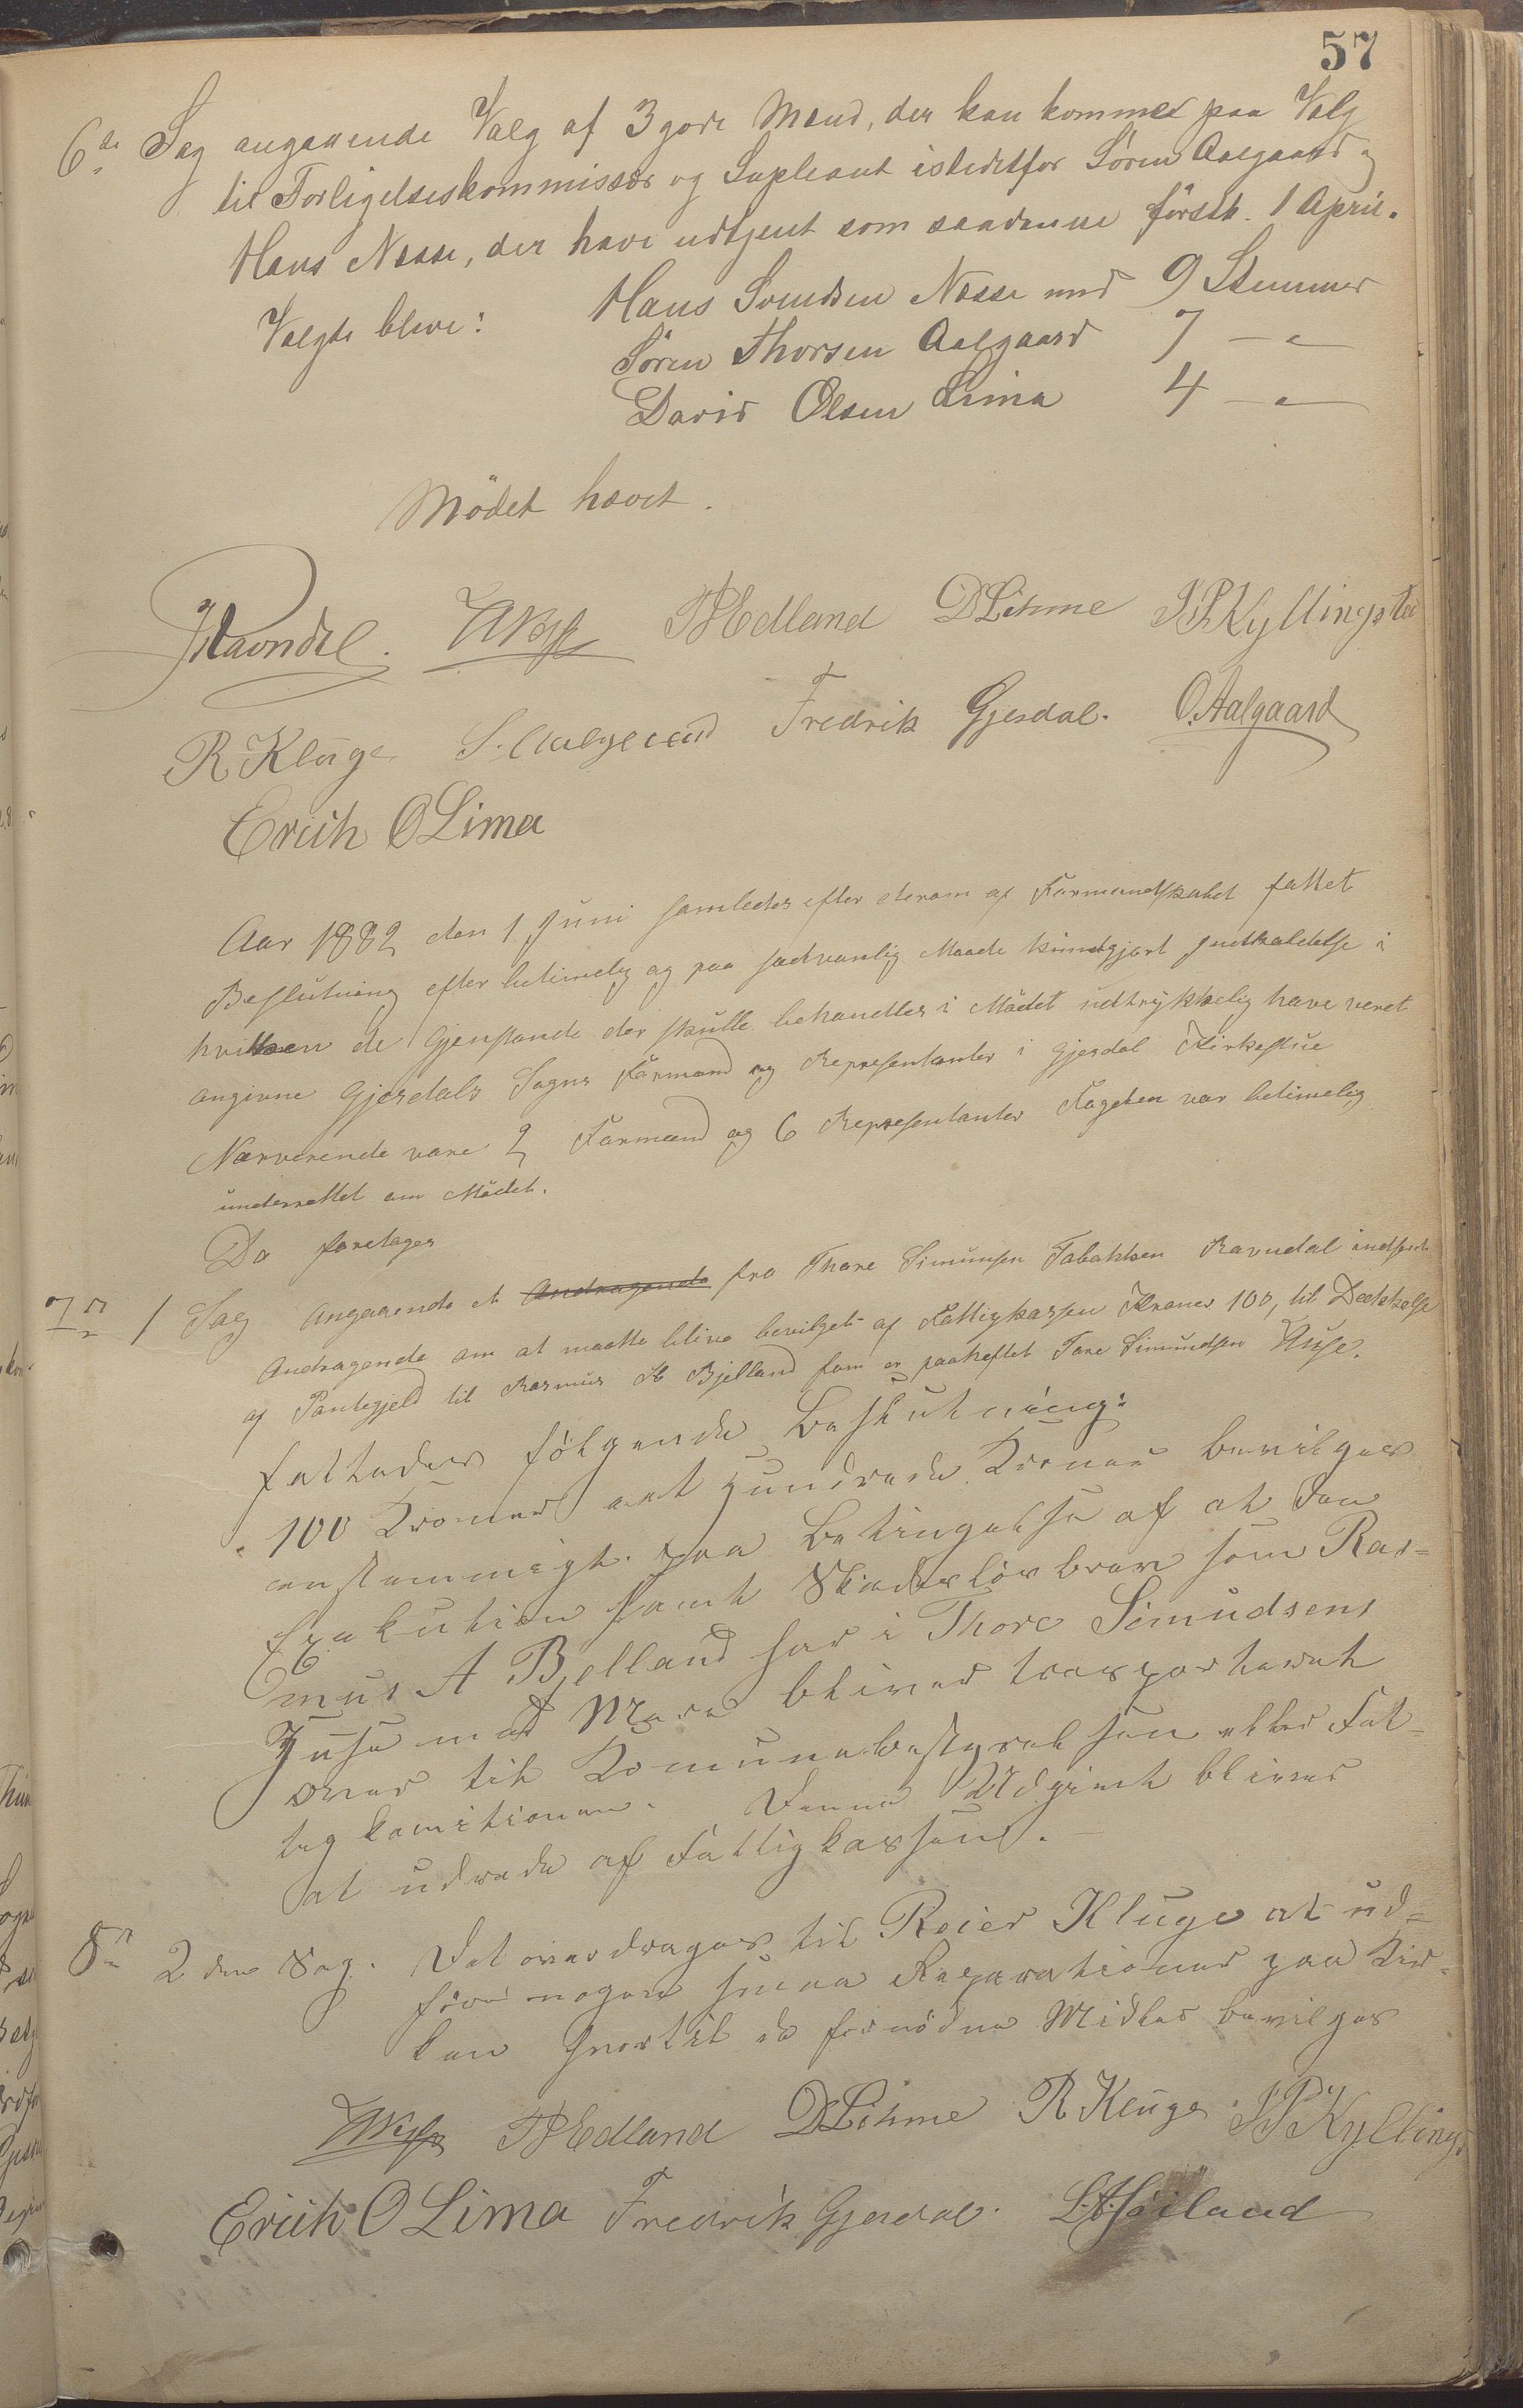 57
6te Sag angaaende Valg af 3 gode Mænd, der kan komme paa Valg
til Forligelseskommissær og Supleant istedetfor Søren Aalgaard og
Hans Nesse, der have udtjent som saadanne førstk. 1 April.
Valgte bleve: Hans Svendsen Nesse med 9 Stemmer
Søren Thorsen Aalgaard 7 — " —
David Olsen Lima 4 — " —
Mødet hævet.
Ravndal. TBEdland DLihme JPKyllingstad
R Kluge S. Aalgaard Fredrik Gjesdal. O. Aalgaard
Erich O Lima
Aar 1882 den 1 Juni samledes efter derom af Formandskabet fattet
Beslutning efter betimelig og paa sædvanlig Maade kundgjort Indkaldelse i
hvilken de Gjenstande der skulle behandles i Mødet udtrykkelig have veret
angivne Gjesdals Sogns Formænd og Representanter i Gjesdal Kirkestue
Nærverende vare 2 Formænd og 6 Representanter Fogden var betimelig
underrettet om Mødet.
Da foretages
7n 1 Sag Angaaende et Andragende fra Thore Simunsen Ravndal
Andragende om at maatte blive bevilget af Fattigkassen Kroner 100, til Dækkelse
af Pantegjeld til Rasmus A Bjelland som er paaheftet Tore Simundsen Huse.
fattedes følgende Beslutning:
100 Kroner et hundrede Kroner bevilges
enstemmigt paa Betingelse af at den
Exekution samt Skadesløsbrev som Ras=
mus A Bjelland har i Thore Simudsens
Huse med Mere bliver transporteret
over til Komunebestyrelsen eller Fat=
tigkomitionen. Denne Udgivt bliver
at udrede af Fattigkassen.
8n 2den Sag. Det overdrages til Reier Kluge at ud=
føre nogen smaa Reparationer paa Kir=
ken hvortil de fornødne Midler bevilges
TBEdland DLihme R Kluge JPKyllings
Erich O Lima Fredrik Gjesdal. L.A. Høiland